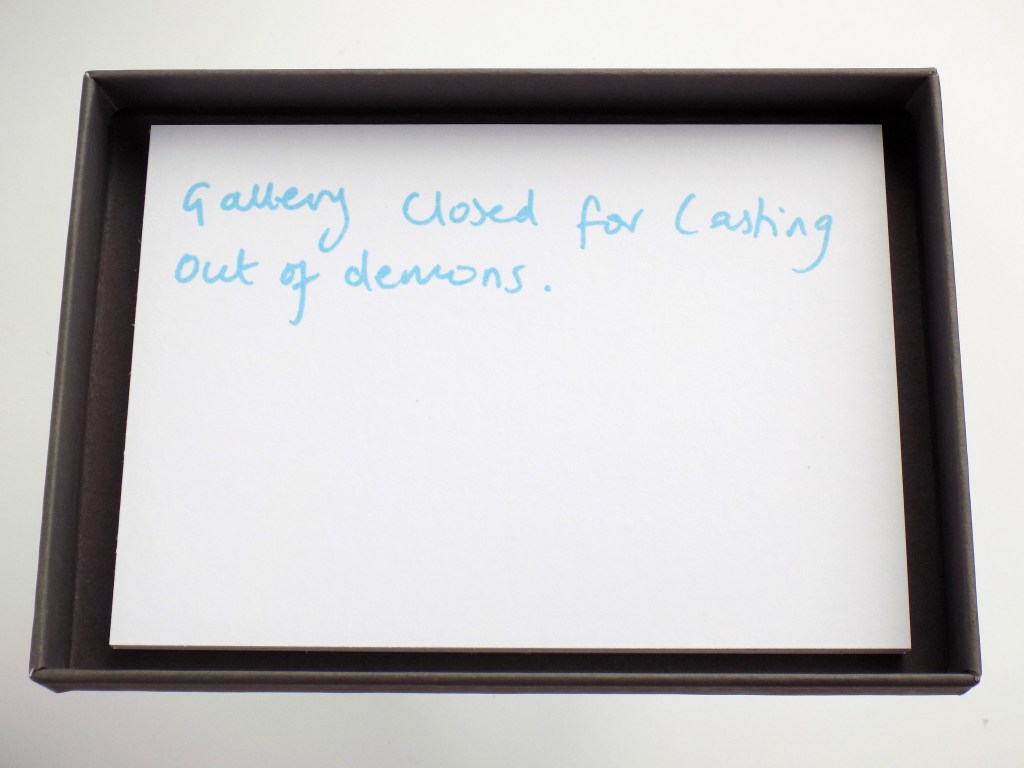 Gallery Closed for Casting
Out of demons.